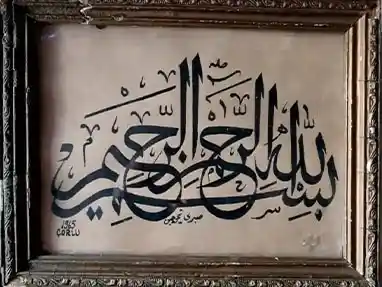 بسم الله الرحمن الرحيم
صبرى
1965
ÇORUM